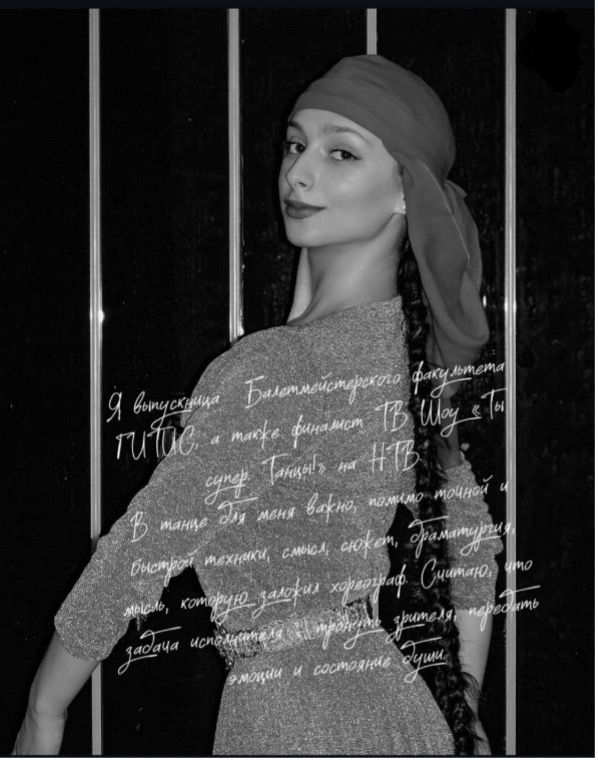 Я выпускница Балетмейстерского факультета
ГИТИС, а также финалист ТВ Шоу «Ты
супер. Танцы!» на НТВ
В танце для меня важно, помимо точной и
быстрой техники, смысл, сюжет, драматургия,
мысль, которую заложил хореограф. Считаю, что
задача исполнителя - тронуть зрителя, передать
эмоции и состояние души.